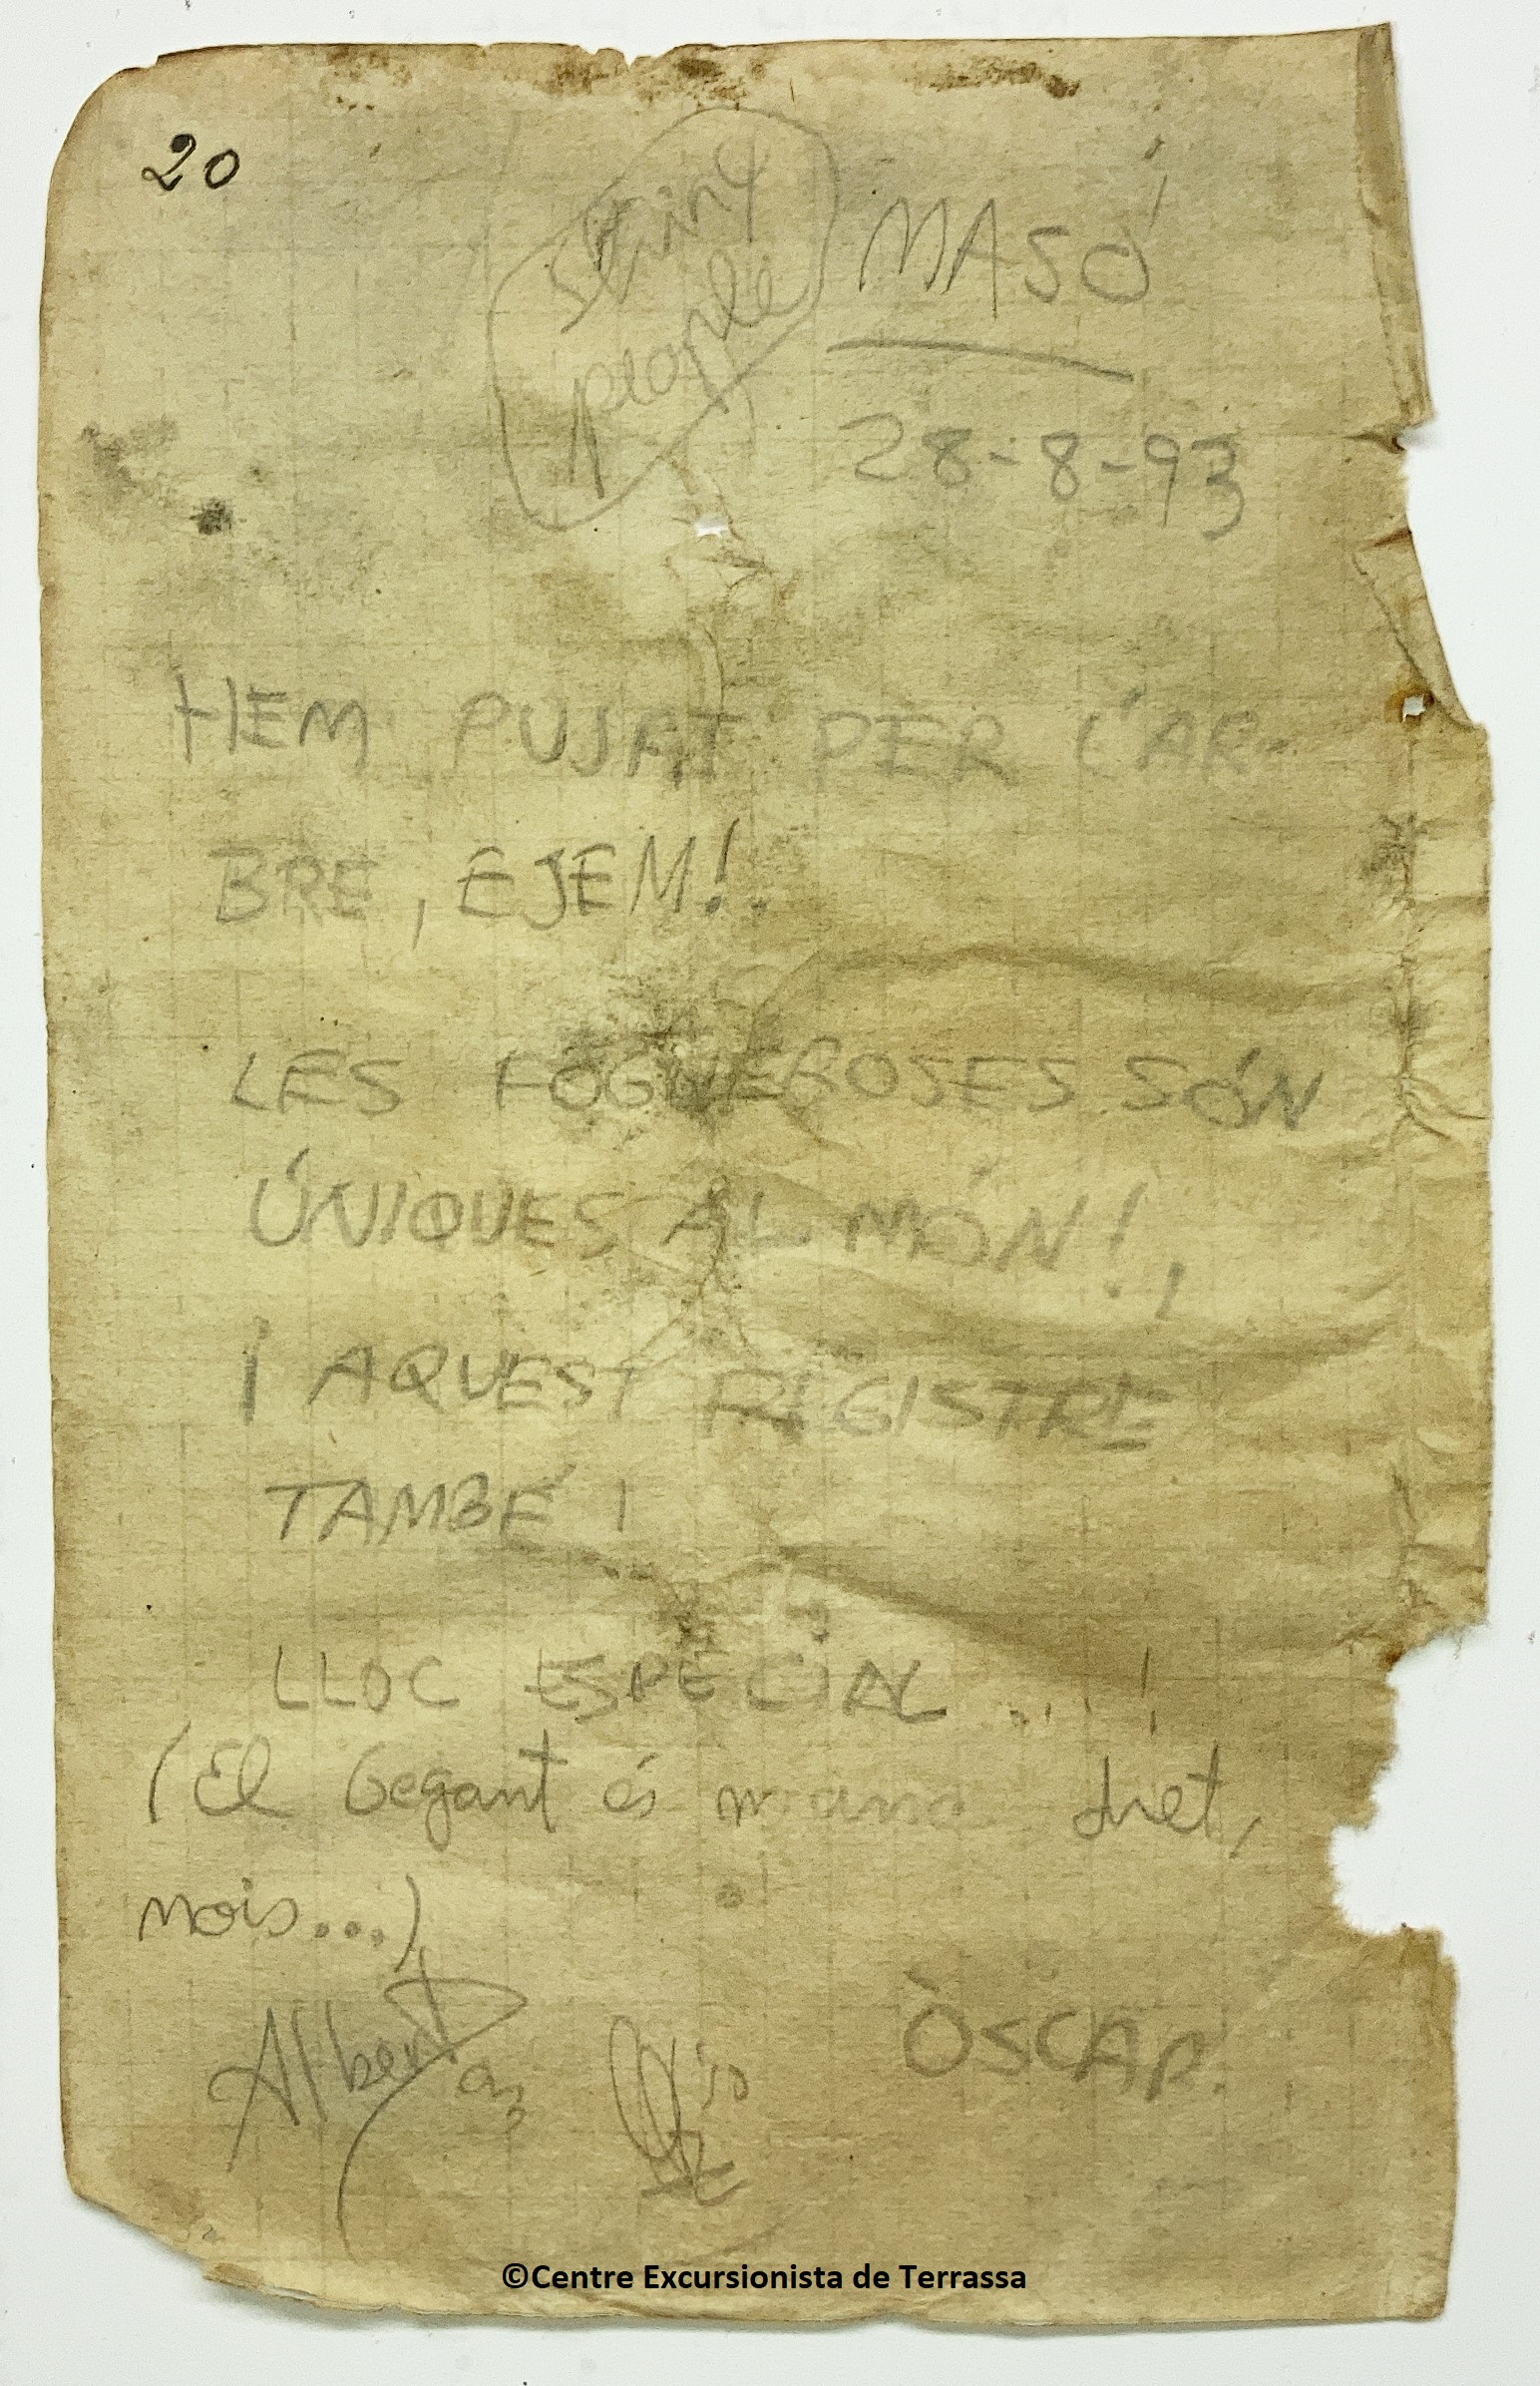 20
Shiny
people
MASÓ
28-8-93
HEM PUJAT PER L'AR-
BRE, EJEM!.
LES FOGUEROSES SÓN
ÚNIQUES AL MÓN!,
I AQUEST REGISTRE
TAMBÉ!
LLOC ESPECIAL ...!
(El Gegant és dret,
nois...)
Albert
ÒSCAR.
©Centre Excursionista de Terrassa